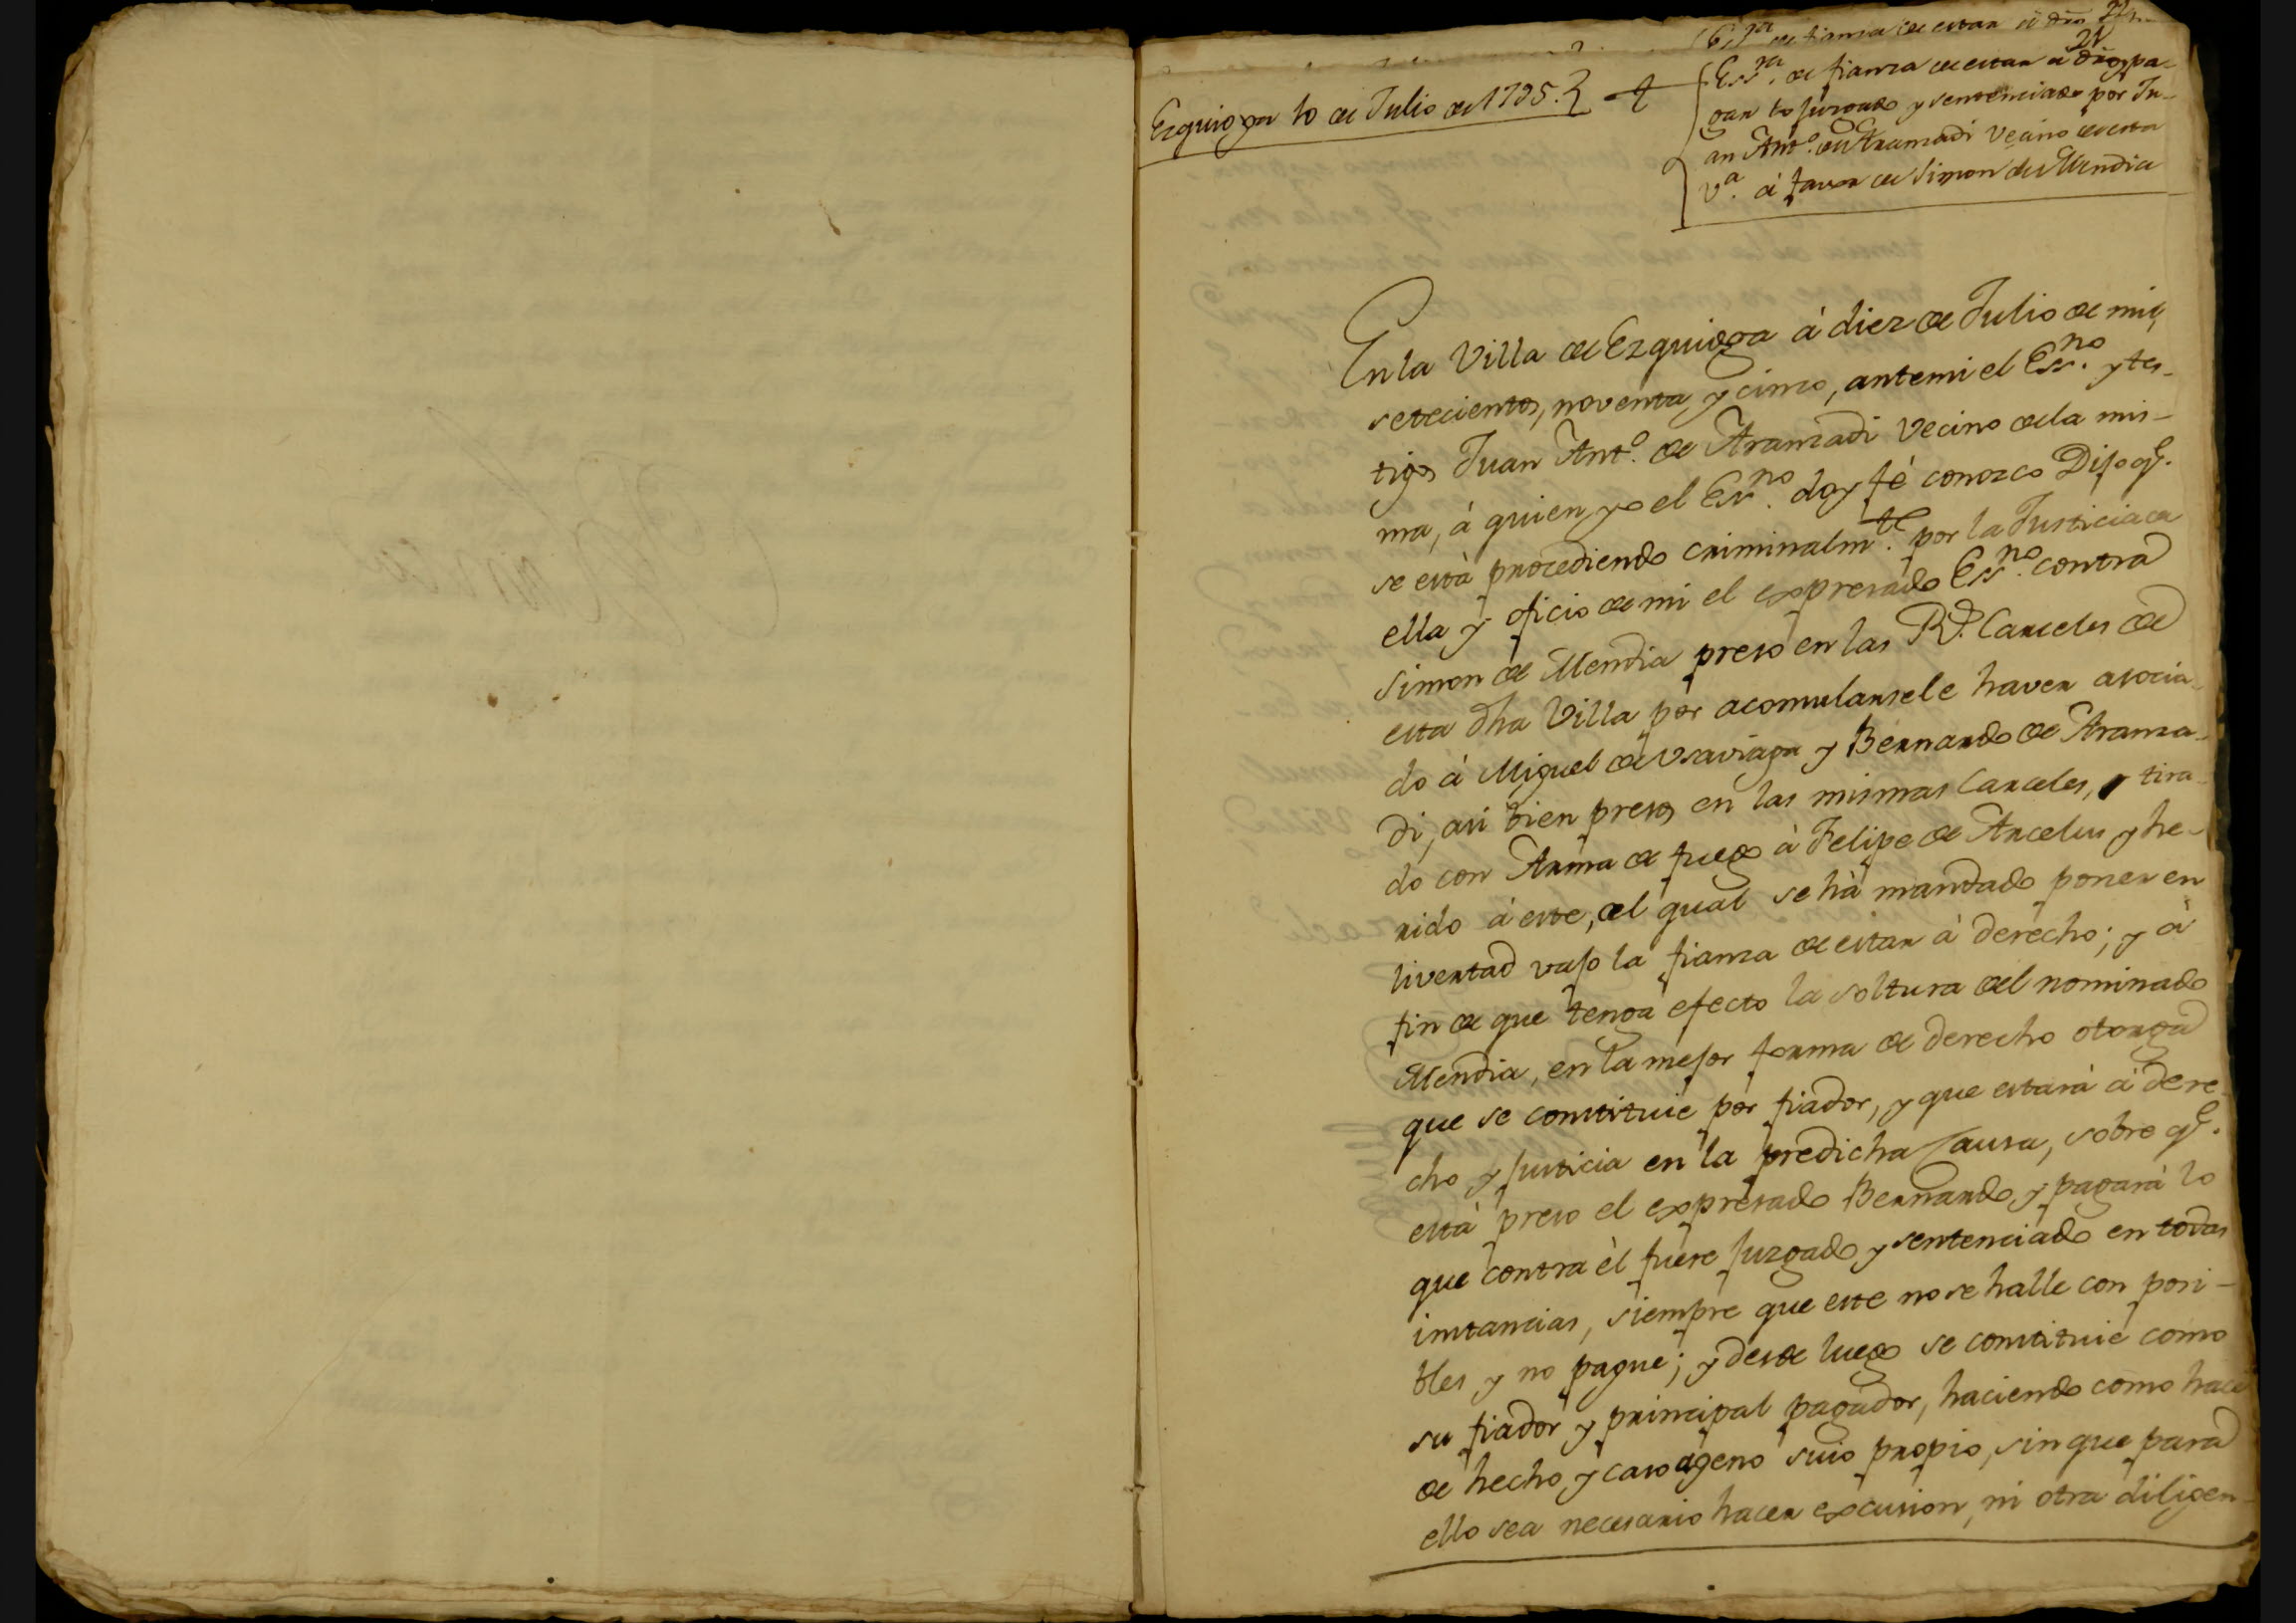 Ezquioga 10 de Julio de 1795.
21
Essra. de fianza de estar à dro, y pa-
gar lo juzgado y sentenciado por Ju-
an Anto. de Aranzadi Vecino de esta
va. à favor de Simon de Mendia
En la Villa de Ezquioga à diez de Julio de mil,
setecientos, noventa, y cinco, antemi el Essno. y tes-
tigos Juan Anto. de Aranzadi Vecino de la mis-
ma, à quien yo el Essno. doy fè conozco Dijo qe.
se està procediendo criminalmte. por la Justicia de
ella y oficio de mi el expresado Essno. contra
Simon de Mendia preso en las Rs. Carceles de
esta dha Villa por acomularsele haver asocia-
do à Miguel de Vsaviaga y Bernardo de Aranza-
di, asi bien presos en las mismas Carceles, y tira-
do con Arma de fuego à Felipe de Arcelus y he-
rido à este, el qual se hà mandado poner en
livertad vajo la fianza de estar à derecho; y à
fin de que tenga efecto la soltura del nominado
Mendia, en la mejor forma de derecho otorga
que se constituie por fiador, y que estarà à dere-
cho y Justicia en la predicha Causa, sobre qe.
està preso el expresado Bernardo, y pagarà lo
que contra èl fuere juzgado y sentenciado en todas
instancias, siempre que este no se halle con posi-
bles y no pague; y desde luego se constituie como
su fiador y principal pagador, haciendo como hace
de hecho y caso ageno suio propio, sin que para
ello sea necesario hacer excusion, ni otra diligen-